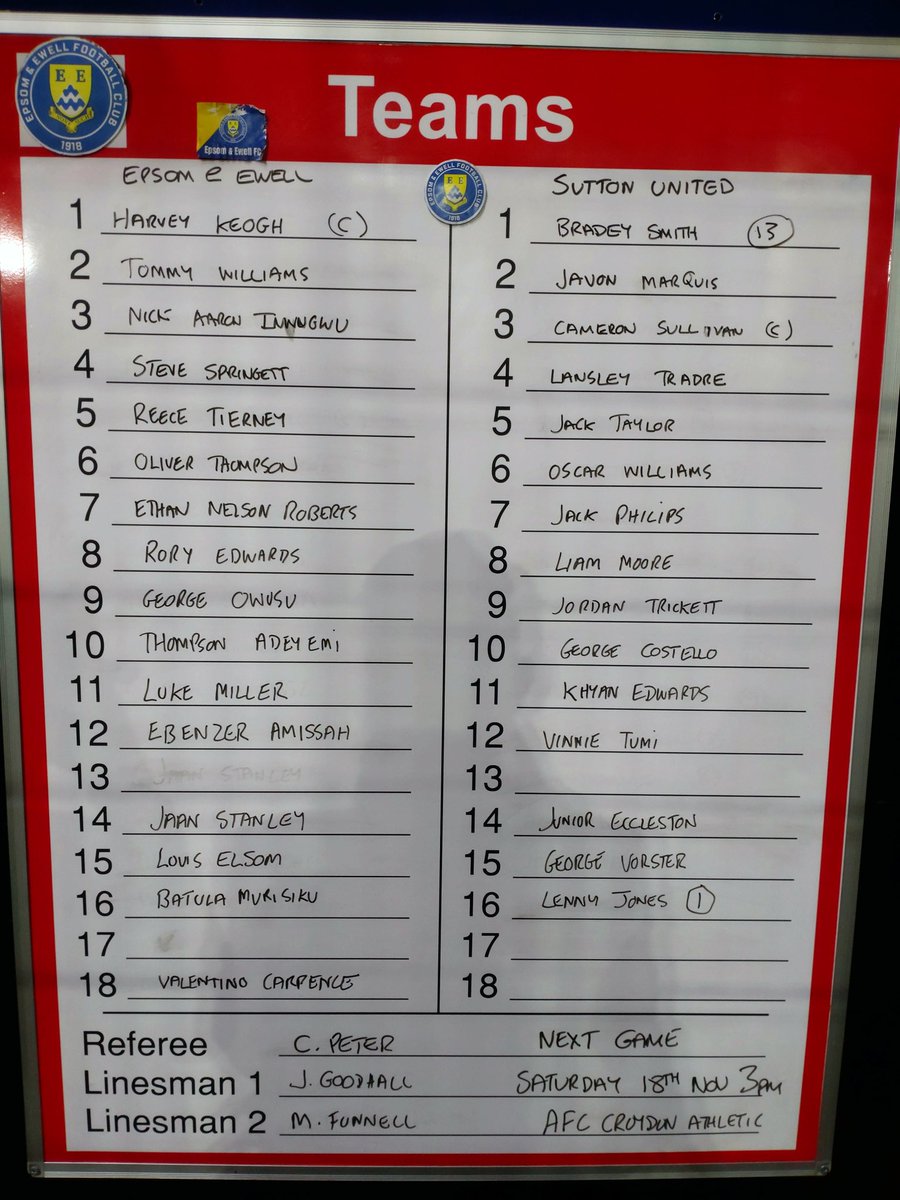 EPSOM & EWELL FOOTBALL CLUB
E E
1918
Epsom & Ewell FC
Teams
EPSOM & EWELL
1 HARVEY KEOGH (C)
2 TOMMY WILLIAMS
3 NICK AARON INNNGWU
4 STEVE SPRINGETT
5 REECE TIERNEY
6 OLIVER THOMPSON
7 ETHAN NELSON ROBERTS
8 RORY EDWARDS
9 GEORGE OWUSU
10 THOMPSON ADEYEMI
11 LUKE MILLER
12 EBENZER AMISSAH
13 JAAN STANLEY
14 JAAN STANLEY
15 LOUIS ELSOM
16 BATULA MURISIKU
17
18 VALENTINO CARPENCE
EPSOM & EWELL FOOTBALL CLUB
E E
1918
SUTTON UNITED
1 BRADEY SMITH 13
2 JAVON MARQUIS
3 CAMERON SULLIVAN (C)
4 LANSLEY TRADRE
5 JACK TAYLOR
6 OSCAR WILLIAMS
7 JACK PHILIPS
8 LIAM MOORE
9 JORDAN TRICKETT
10 GEORGE COSTELLO
11 KHYAN EDWARDS
12 VINNIE TUMI
13
14 JUNIOR ECCLESTON
15 GEORGE VORSTER
16 LENNY JONES 1
17
18
Referee C. PETER
Linesman 1 J. GOODHALL
Linesman 2 M. FUNNELL
NEXT GAME
SATURDAY 18TH NOV 3PM
AFC CROYDON ATHLETIC